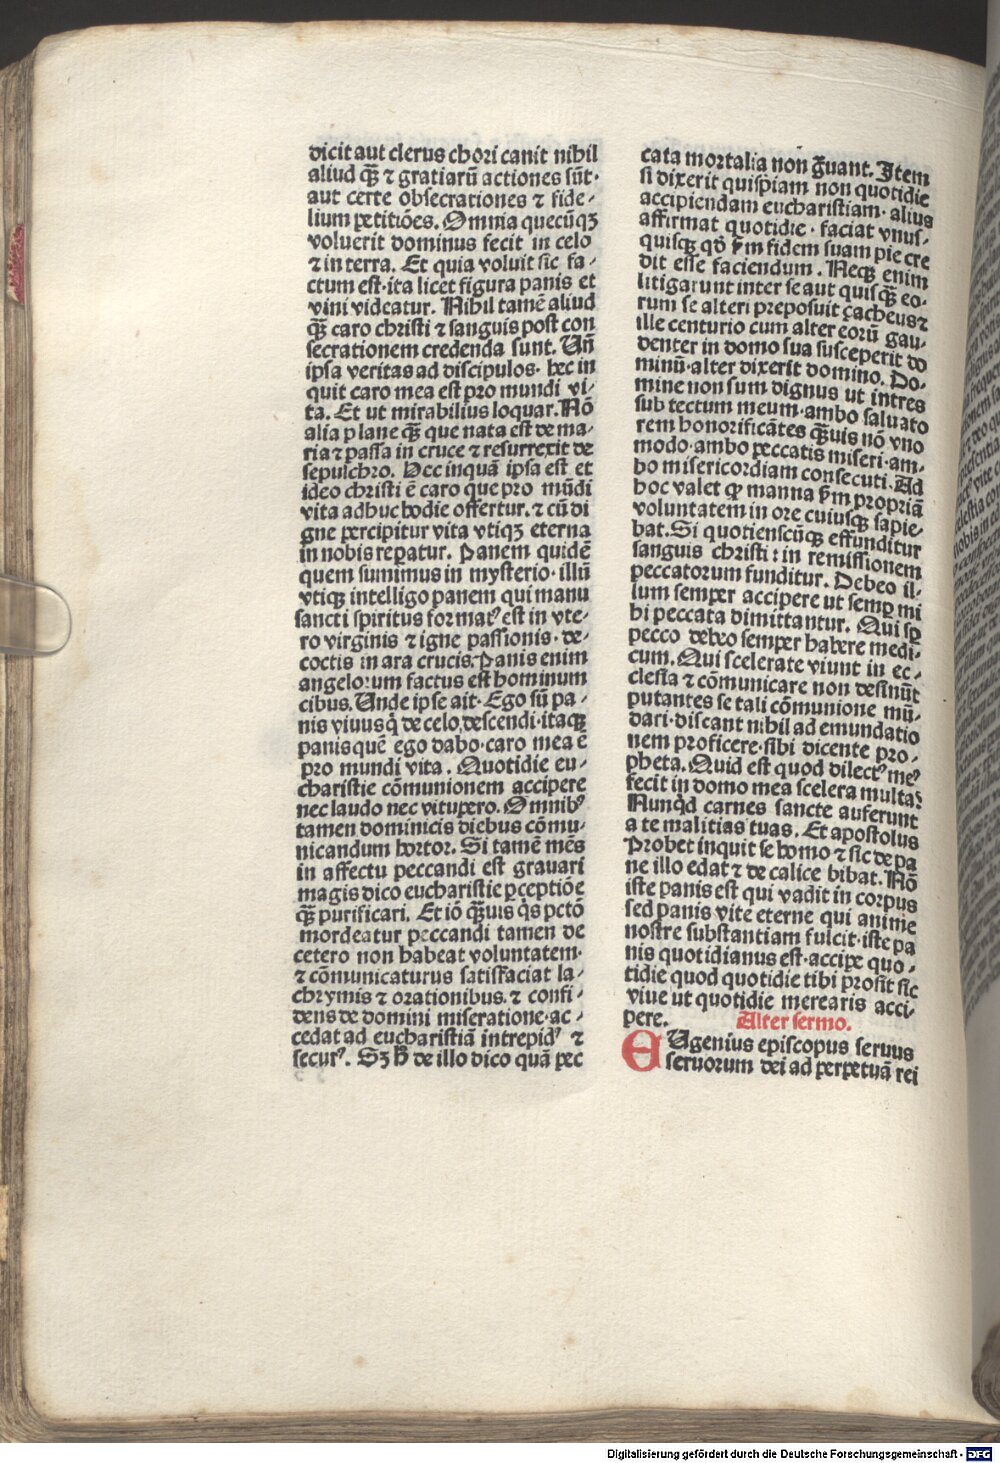 dicit aut clerus chori canit nihil
aliud qꝫ̄ ⁊ gratiarū actiones sūt·
aut certe obsecrationes ⁊ fide⸗
lium petitiōes. Omnia quecūqꝫ
voluerit dominus fecit in celo
⁊ in terra. Et quia voluit sic fa⸗
ctum est·ita licet figura panis et
vini videatur. Nihil tamē aliud
qꝫ̄ caro christi ⁊ sanguis post con
secrationem credenda sunt. Uñ
ipsa veritas ad discipulos· hec in
quit caro mea est pro mundi vi⸗
ta. Et ut mirabilius loquar. Nō
alia plane qꝫ̄ que nata est de ma⸗
ria ⁊ passa in cruce ⁊ resurrexit de
sepulchro. Hec inquā ipsa est et
ideo christi ē caro que pro mūdi
vita adhuc hodie offertur. ⁊ cū di
gne percipitur vita vtiqꝫ eterna
in nobis reparatur. Panem quidē
quem sumimus in mysterio· illū
vtiqꝫ intelligo panem qui manu
sancti spiritus formatꝰ est in vte⸗
ro virginis ⁊ igne passionis· de⸗
coctis in ara crucis. Panis enim
angelorum factus est hominum
cibus. Unde ipse ait· Ego sū pa⸗
nis viuus q̇ de celo descendi·itaqꝫ
panis quē ego dabo·caro mea ē
pro mundi vita . Quotidie eu⸗
charistie cōmunionem accipere
nec laudo nec vitupero. Omnibꝰ
tamen dominicis diebus cōmu⸗
nicandum hortor. Si tamē mēs
in affectu peccandi est grauari
magis dico eucharistie ꝑceptiōe
qꝫ̄ purificari. Et iō qꝫ̄uis q̇s pctō
mordeatur peccandi tamen de
cetero non habeat voluntatem·
⁊ cōmunicaturus satisfaciat la⸗
chrymis ⁊ orationibus. ⁊ confi⸗
dens de domini miseratione·ac⸗
cedat ad eucharistiā intrepidꝰ ⁊
securꝰ. Sꝫ h̄ de illo dico quā pec
cata mortalia non g̃uant. Item
si dixerit quispiam non quotidie
accipiendam eucharistiam· alius
affirmat quotidie · faciat vnus⸗
quisqꝫ qđ ẜm fidem suam pie cre
dit esse faciendum . Neqꝫ enim
litigarunt inter se aut quisqꝫ̄ eo⸗
rum se alteri preposuit çacheus ⁊
ille centurio cum alter eorū gau⸗
denter in domo sua susceperit do
minū·alter dixerit domino. Do⸗
mine non sum dignus ut intres
sub tectum meum·ambo saluato
rem honorificātes qꝫ̄uis nō vno
modo·ambo peccatis miseri·am⸗
bo misericordiam consecuti. Ad
hoc valet ꝙ manna ẜm propriā
voluntatem in ore cuiusqꝫ sapie⸗
bat. Si quotienscūqꝫ effunditur
sanguis christi : in remissionem
peccatorum funditur. Debeo il⸗
lum semper accipere ut semꝑ mi
hi peccata dimittantur. Qui sꝑ
pecco debeo semper habere medi⸗
cum. Qui scelerate viunt in ec⸗
clesia ⁊ cōmunicare non desinūt
putantes se tali cōmunione mū⸗
dari·discant nihil ad emundatio
nem proficere·sibi dicente pro⸗
pheta. Quid est quod dilectꝰ meꝰ
fecit in domo mea scelera multa?
Nunqd̓ carnes sancte auferunt
a te malitias tuas. Et apostolus
Probet inquit se homo ⁊ sic de pa
ne illo edat ⁊ de calice bibat. Nō
iste panis est qui vadit in corpus
sed panis vite eterne qui anime
nostre substantiam fulcit·iste pa
nis quotidianus est·accipe quo⸗
tidie quod quotidie tibi prosit sic
viue ut quotidie merearis acci⸗
pere. Alter sermo.
EUgenius episcopus seruus
seruorum dei ad perpetuā rei
Digitalisierung gefördert durch die Deutsche Forschungsgemeinschaft - DFG